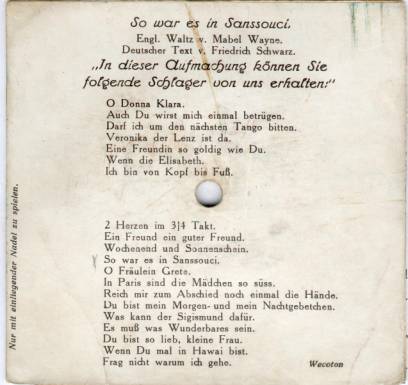 So war es in Sanssouci.
Engl. Waltz v. Mabel Wayne.
Deutscher Text v. Friedrich Schwarz.
„In dieser Aufmachung können Sie
folgende Schlager von uns erhalten:"
O Donna Klara.
Auch Du wirst mich einmal betrügen.
Darf ich um den nächsten Tango bitten.
Veronika der Lenz ist da.
Eine Freundin so goldig wie Du.
Wenn die Elisabeth.
Ich bin von Kopf bis Fuß.
2 Herzen im 3/4 Takt.
Ein Freund ein guter Freund.
Wochenend und Sonnenschein.
So war es in Sanssouci.
O Fräulein Grete.
In Paris sind die Mädchen so süss.
Reich mir zum Abschied noch einmal die Hände.
Du bist mein Morgen- und mein Nachtgebetchen.
Was kann der Sigismund dafür.
Es muß was Wunderbares sein.
Du bist so lieb, kleine Frau.
Wenn Du mal in Hawai bist.
Frag nicht warum ich gehe.
Wecoton
Nur mit einliegender Nadel zu spielen.